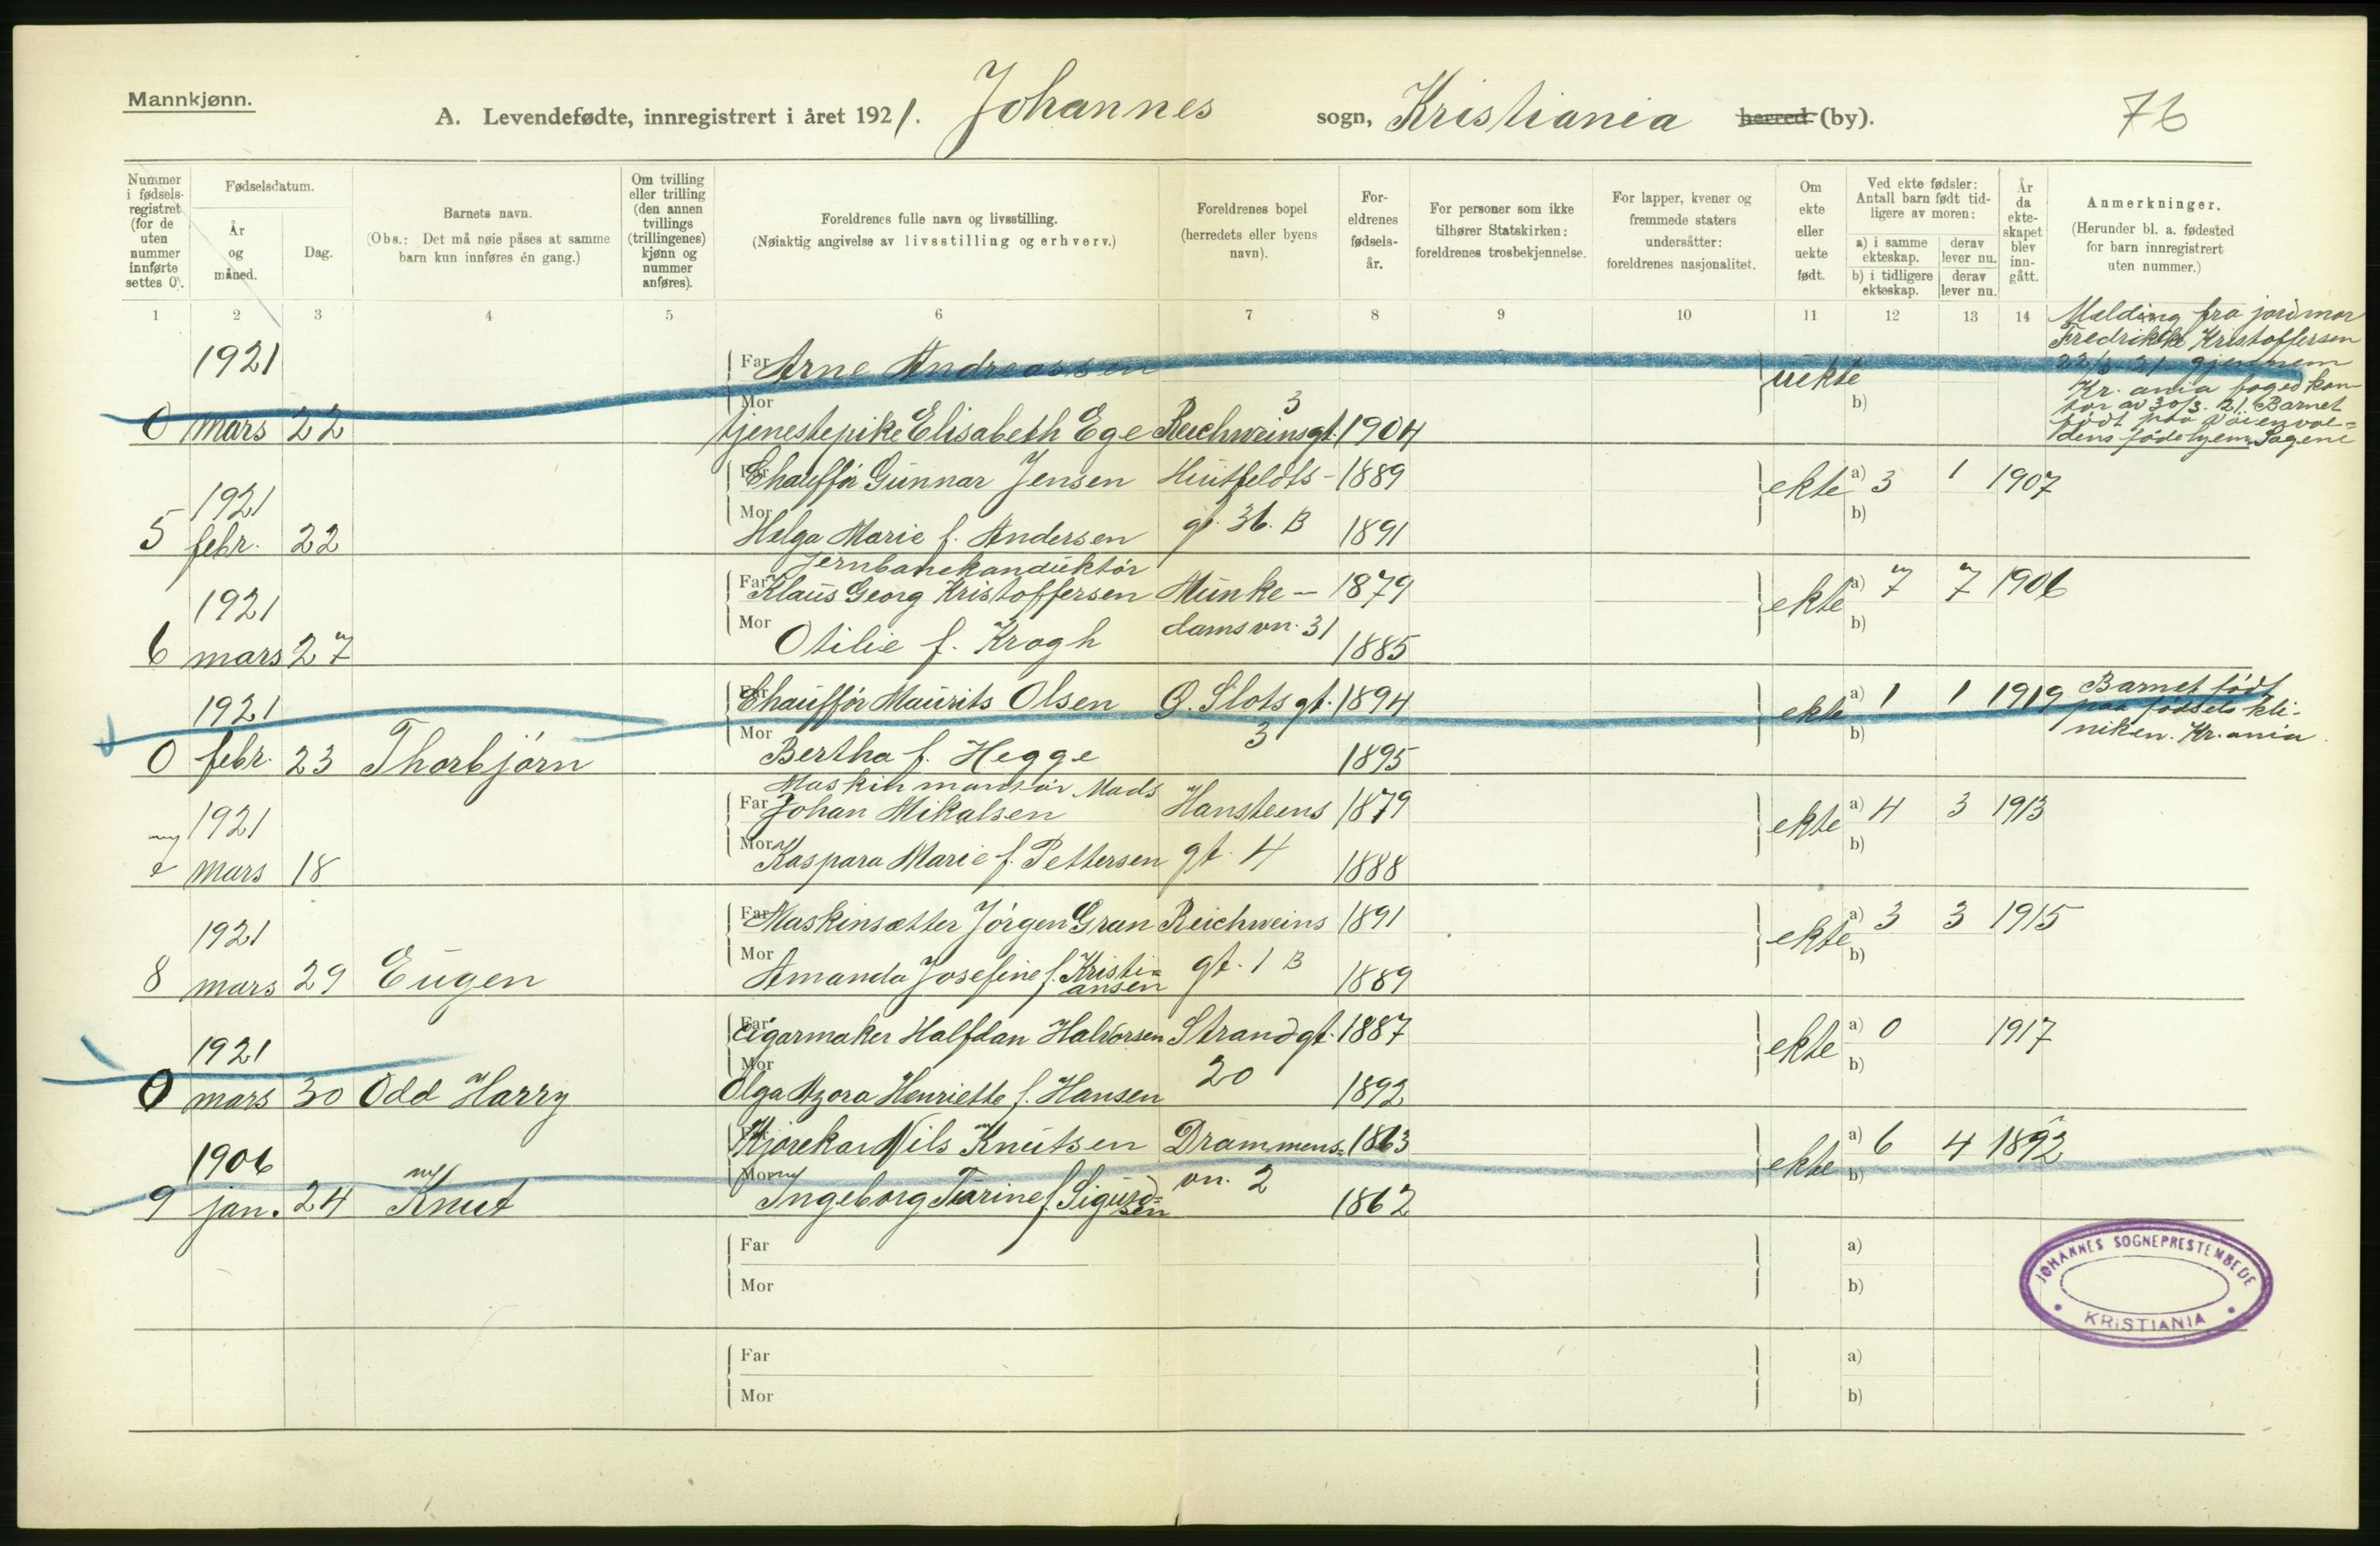 Mannkjønn.
A. Levendefødte, innregistrert i året 1921. Johannes sogn, Kristiania herred (by). 76
Nummer i fødselsregistret (for de uten nummer innførte settes 0).
Fødselsdatum.
År og måned.
Dag.
Barnets navn.
(Obs.: Det må nøie påses at samme barn kun innføres én gang.)
Om tvilling eller trilling (den annen tvillings (trillingenes) kjønn og nummer anføres).
Foreldrenes fulle navn og livsstilling.
(Nøiaktig angivelse av livsstilling og erhverv.)
Foreldrenes bopel (herredets eller byens navn).
Foreldrenes fødselsår.
For personer som ikke tilhører Statskirken: foreldrenes trosbekjennelse.
For lapper, kvener og fremmede staters undersåtter: foreldrenes nasjonalitet.
Om ekte eller uekte født.
Ved ekte fødsler: Antall barn født tidligere av moren:
a) i samme ekteskap.
derav lever nu.
b) i tidligere ekteskap.
derav lever nu.
År da ekteskapet blev inngått.
Anmerkninger.
(Herunder bl. a. fødested for barn innregistrert uten nummer.)
1 2 3 4 5 6 7 8 9 10 11 12 13 14
Melding fra jordmor
Fredrikke Kristoffersen
22/3-21 gjennem
Kr. ania fogedkon-
tor av 30/3. 21. Barnet
født paa Voienvol=
dens fødehjem. Sagene
1921
Far Arne Andreassen
uekte
b)
Mor
3
0 mars 22 tjenestepike Elisabeth Ege Reichweinsgt. 1904
Far Chauffør Gunnar Jensen Huitfeldts- 1889
ekte a) 3 1 1907
1921
Mor b)
5 febr. 22 Helga Marie f. Andersen gt. 36. B 1891
Jernbanekonduktör
1921 Far Klaus Georg Kristoffersen Munke- 1879 ekte a) 7 7 1906
Mor b)
6 mars 27 Otilie f. Krogh damsvn. 31 1885
1921 Far Chauffør Maurits Olsen D. Slotsgt. 1894 ekte a) 1 1 1919 Barnet født
paa fødselskli-
niken. Kr.ania.
Mor 3 b)
0 febr. 23 Thorbjörn Bertha f. Hegge 1895
Maskinmontör Mads
1921 Far Johan Mikalsen Hansteens 1879 ekte a) 4 3 1913
Mor b)
7 mars 18 Kaspara Marie f. Pettersen gt. 4 1888
1921 Far Maskinsætter Jörgen Gran Reichweins 1891 ekte a) 3 3 1915
Mor b)
8 mars 29 Eugen Amanda Josefine f. Kristi=
ansen gt. 1 B 1889
1921 Far Cigarmaker Halfdan Halvorsen Strandgt. 1887 ekte a) 0 1917
Mor 20 b)
0 mars 30 Odd Harry Olga Azora Henriette f. Hansen 1892
1906 Kjörekar Nils Knutsen Drammens= 1863 ekte a) 6 4 1892
Mor b)
9 jan. 24 Knut Ingeborg Turine f. Sigurd=
sen vn. 2 1862
Far a)
Mor b)
Far a)
Mor b)
JOHANNES SOGNEPRESTEMBEDE
KRISTIANIA